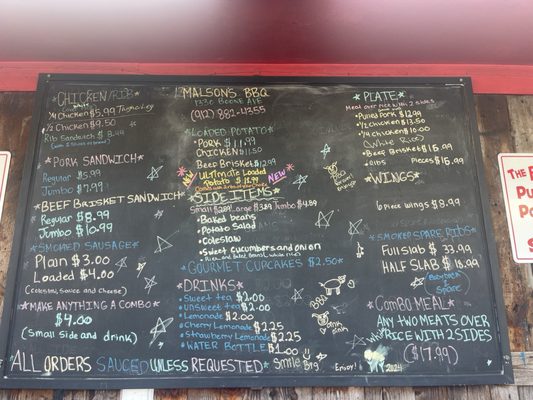 MALSON'S BBQ
1330 BOONE AVE
(912) 882-4355
*CHICKEN/RIB*
1/4 Chicken $5.99
1/2 Chicken $9.50
Rib Sandwich $
(w/ 2 Slices of Bread)
*PORK SANDWICH*
Regular $5.99
Jumbo $7.99!
*BEEF BRISKET SANDWICH*
Regular $8.99
Jumbo $10.99
*SMOKED SAUSAGE*
Plain $3.00
Loaded $4.00
(Coleslaw, sauce and cheese)
*MAKE ANYTHING A COMBO*
$4.00
(Small Side and drink)
*LOADED POTATO*
*PORK $11.99
CHICKEN $11.50
Beef Brisket $12.99
NEW
Ultimate Loaded
Potato $15.99
NEW
*SIDE ITEMS*
Small $2.89 Large $3.89 Jumbo $4.89
*Baked beans
*Potato Salad
*Coleslaw
*Sweet Cucumbers and onion
*GOURMET CUPCAKES $2.50*
*DRINKS*
*Sweet tea $2.00
*Unsweet tea $2.00
*Lemonade $2.00
*Cherry Lemonade $2.25
*Strawberry Lemonade $2.25
*WATER BOTTLE $1.00
*PLATE*
Meat over rice with 2 sides
*Pulled Pork $12.99
*1/2 Chicken $13.50
*1/4 Chicken $10.00
*White Rice
*Beef Brisket $16.99
*Ribs Pieces $16.99
*WINGS*
6 piece Wings $8.99
*SMOKED SPARE RIBS*
Full slab $33.99
HALF SLAB $18.99
*COMBO MEAL*
ANY TWO MEATS OVER
RICE WITH 2 SIDES
($17.99)
*ALL ORDERS SAUCED UNLESS REQUESTED*
Smile Big
Enjoy!
2024